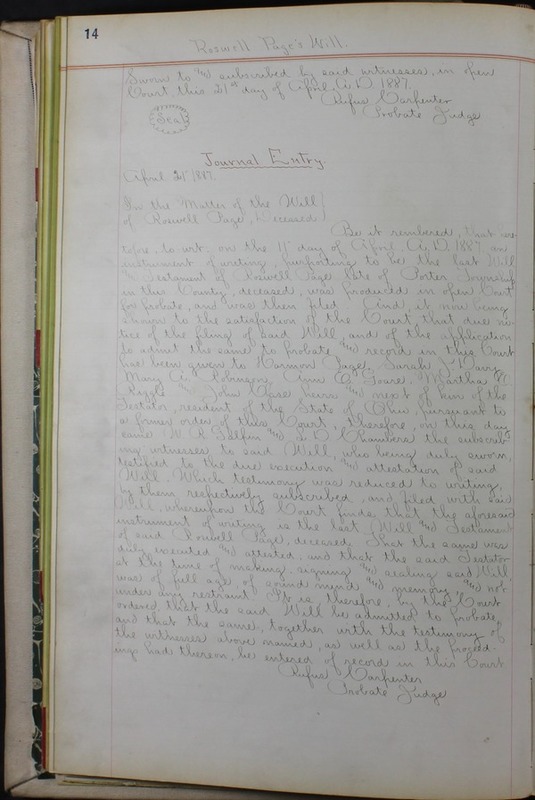 14
Roswell Page's Will.
Sworn to and subscribed by said witnesses, in open
Court, this 21st day of April A.D. 1887.
Rufus Carpenter
Probate Judge
Seal
Journal Entry.
April 21st 1887.
In the Matter of the Will
of Roswell Page, Deceased
Be it remembered, that here
tofore, to-wit, on the day of April A.D. 1887 an
instrument of writing, purporting to be the last Will
and Testament of Roswell Page late of Porter Township
in this County, deceased, was produced in open Court
for probate, and was then filed. And, it now being
shown to the satisfaction of the Court that due no-
tice of the filing of said Will and of the application
to admit the same to probate and record in this Court
has been given to Harmon Page, Sarah J.
Mary A. Robinson, Ann E. Martha
and John Page heirs and next of kin of the
Testator, resident of the State of Ohio, pursuant to
a former order of this Court, Therefore, on this day
came W. R. and Chambers the subscrib-
ing witnesses to said Will, who being duly sworn,
testified to the due execution and attestation of said
Will. Which testimony was reduced to writing,
by them respectively subscribed, and filed with said
Will, whereupon the Court finds, that the aforesaid
instrument of writing is the last Will and Testament
of said Roswell Page, deceased, that the same was
duly executed and attested, and that the said Testator
at the time of making, signing and sealing said Will,
was of full age, of sound mind and memory, and not
under any restraint. It is therefore, by the Court
ordered, that the said Will be admitted to probate,
and that the same, together with the testimony of
the witnesses above named, as well as the proceed-
ings had thereon, be entered of record in this Court
Rufus Carpenter
Probate Judge